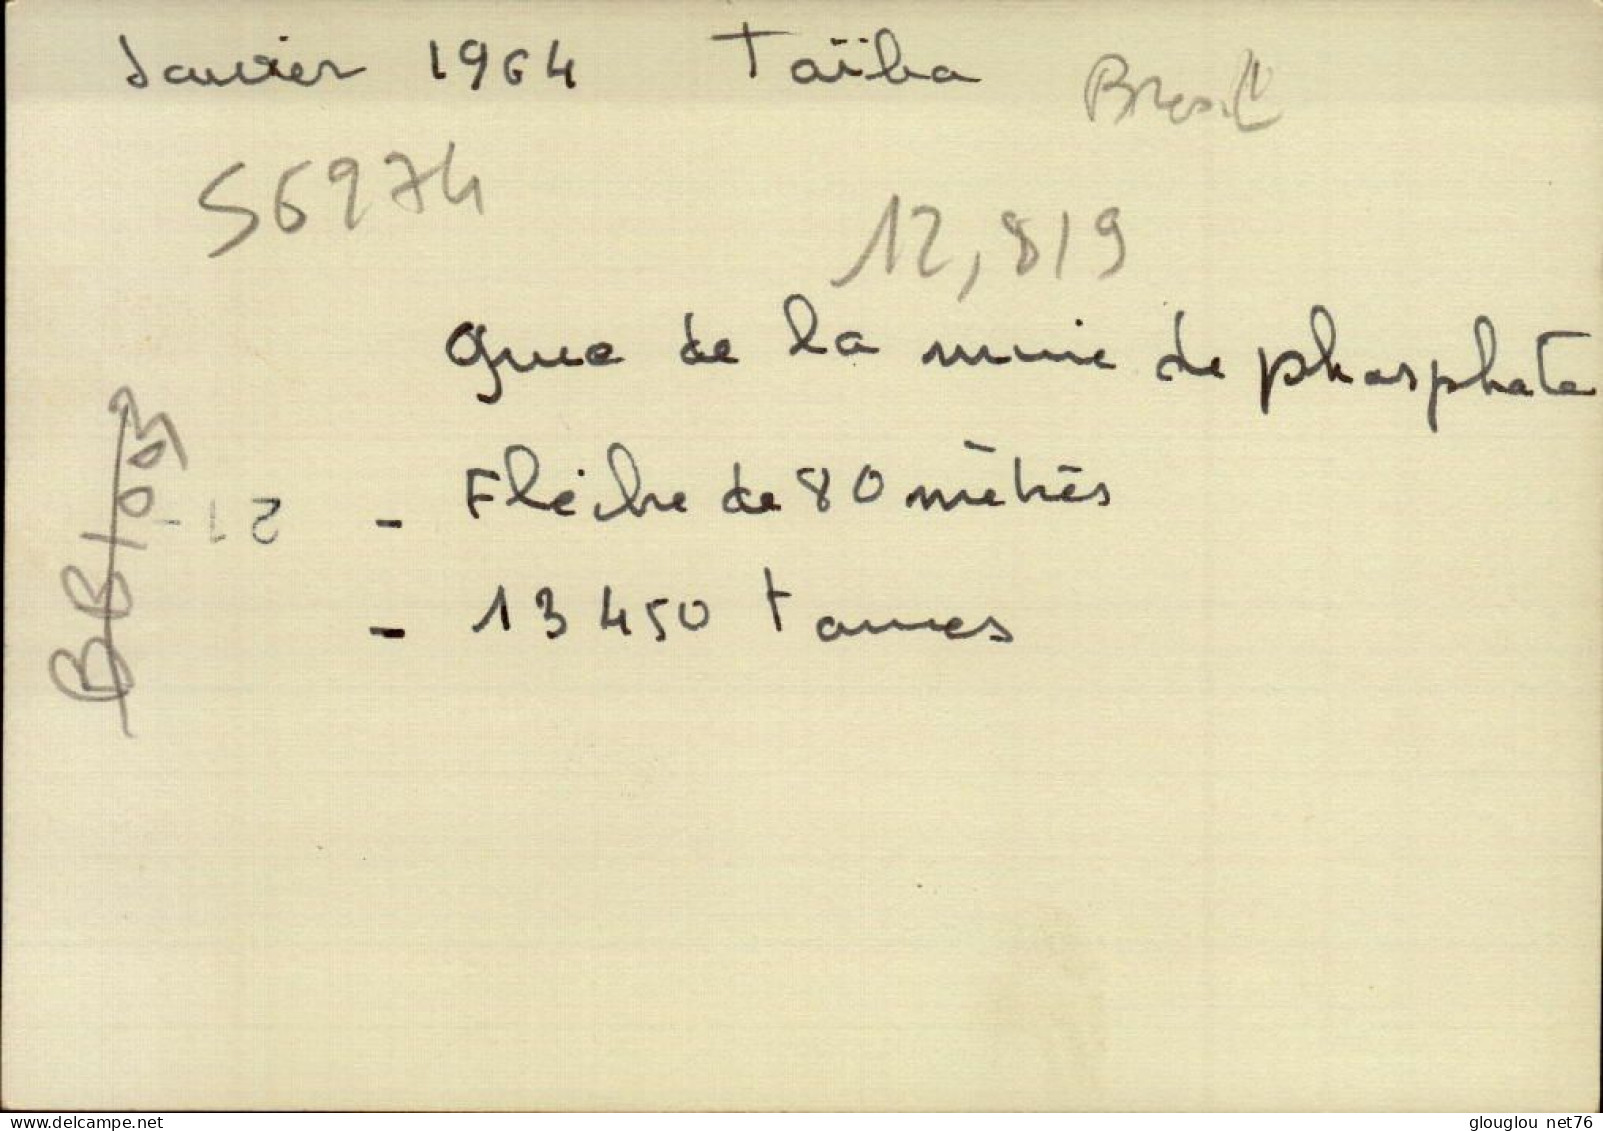 Janvier 1964 Taïba Bresil
56974
12,819
Grue de la mine de phosphate
- Flèche de 80 mètres
- 13 450 tonnes
21-
delcampe.net
glouglou net76